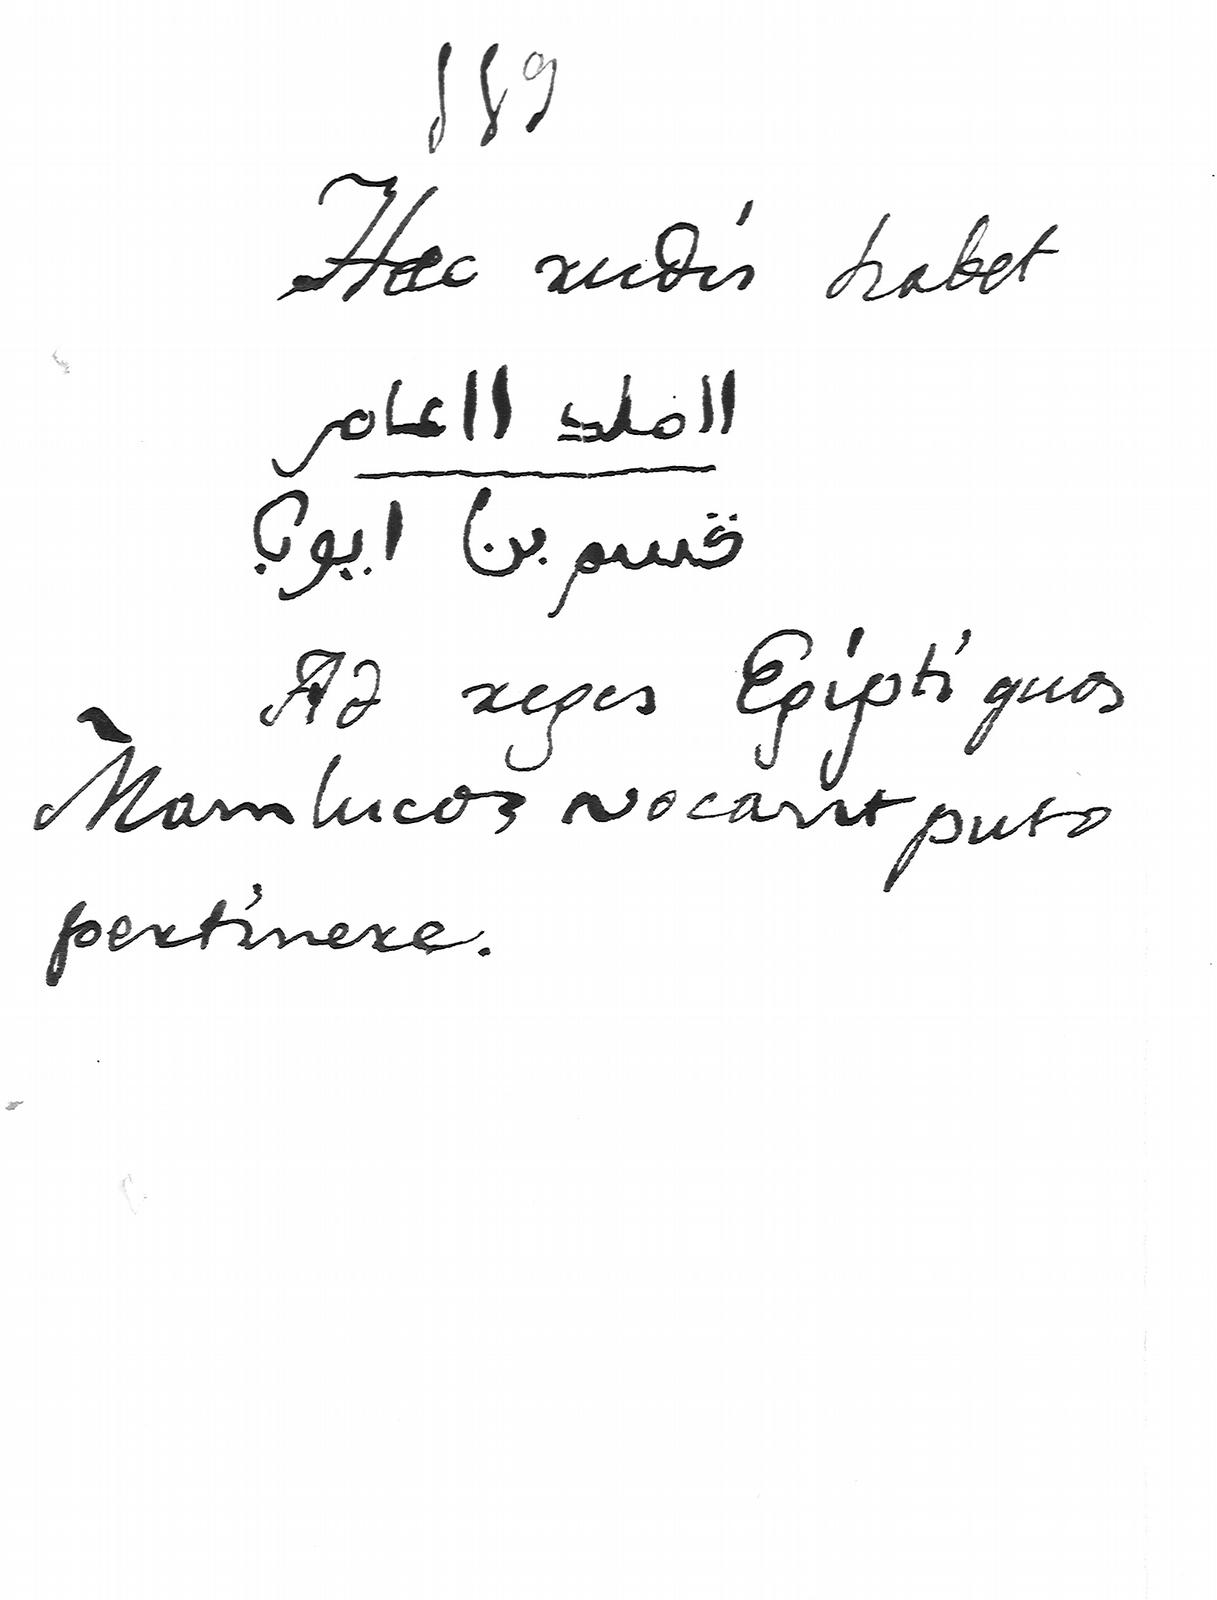 189
Hæc rudis habet
الملك العامر
قسم بن ايوب
Ad reges Egipti quos
Mamlucos vocant puto
pertinere.